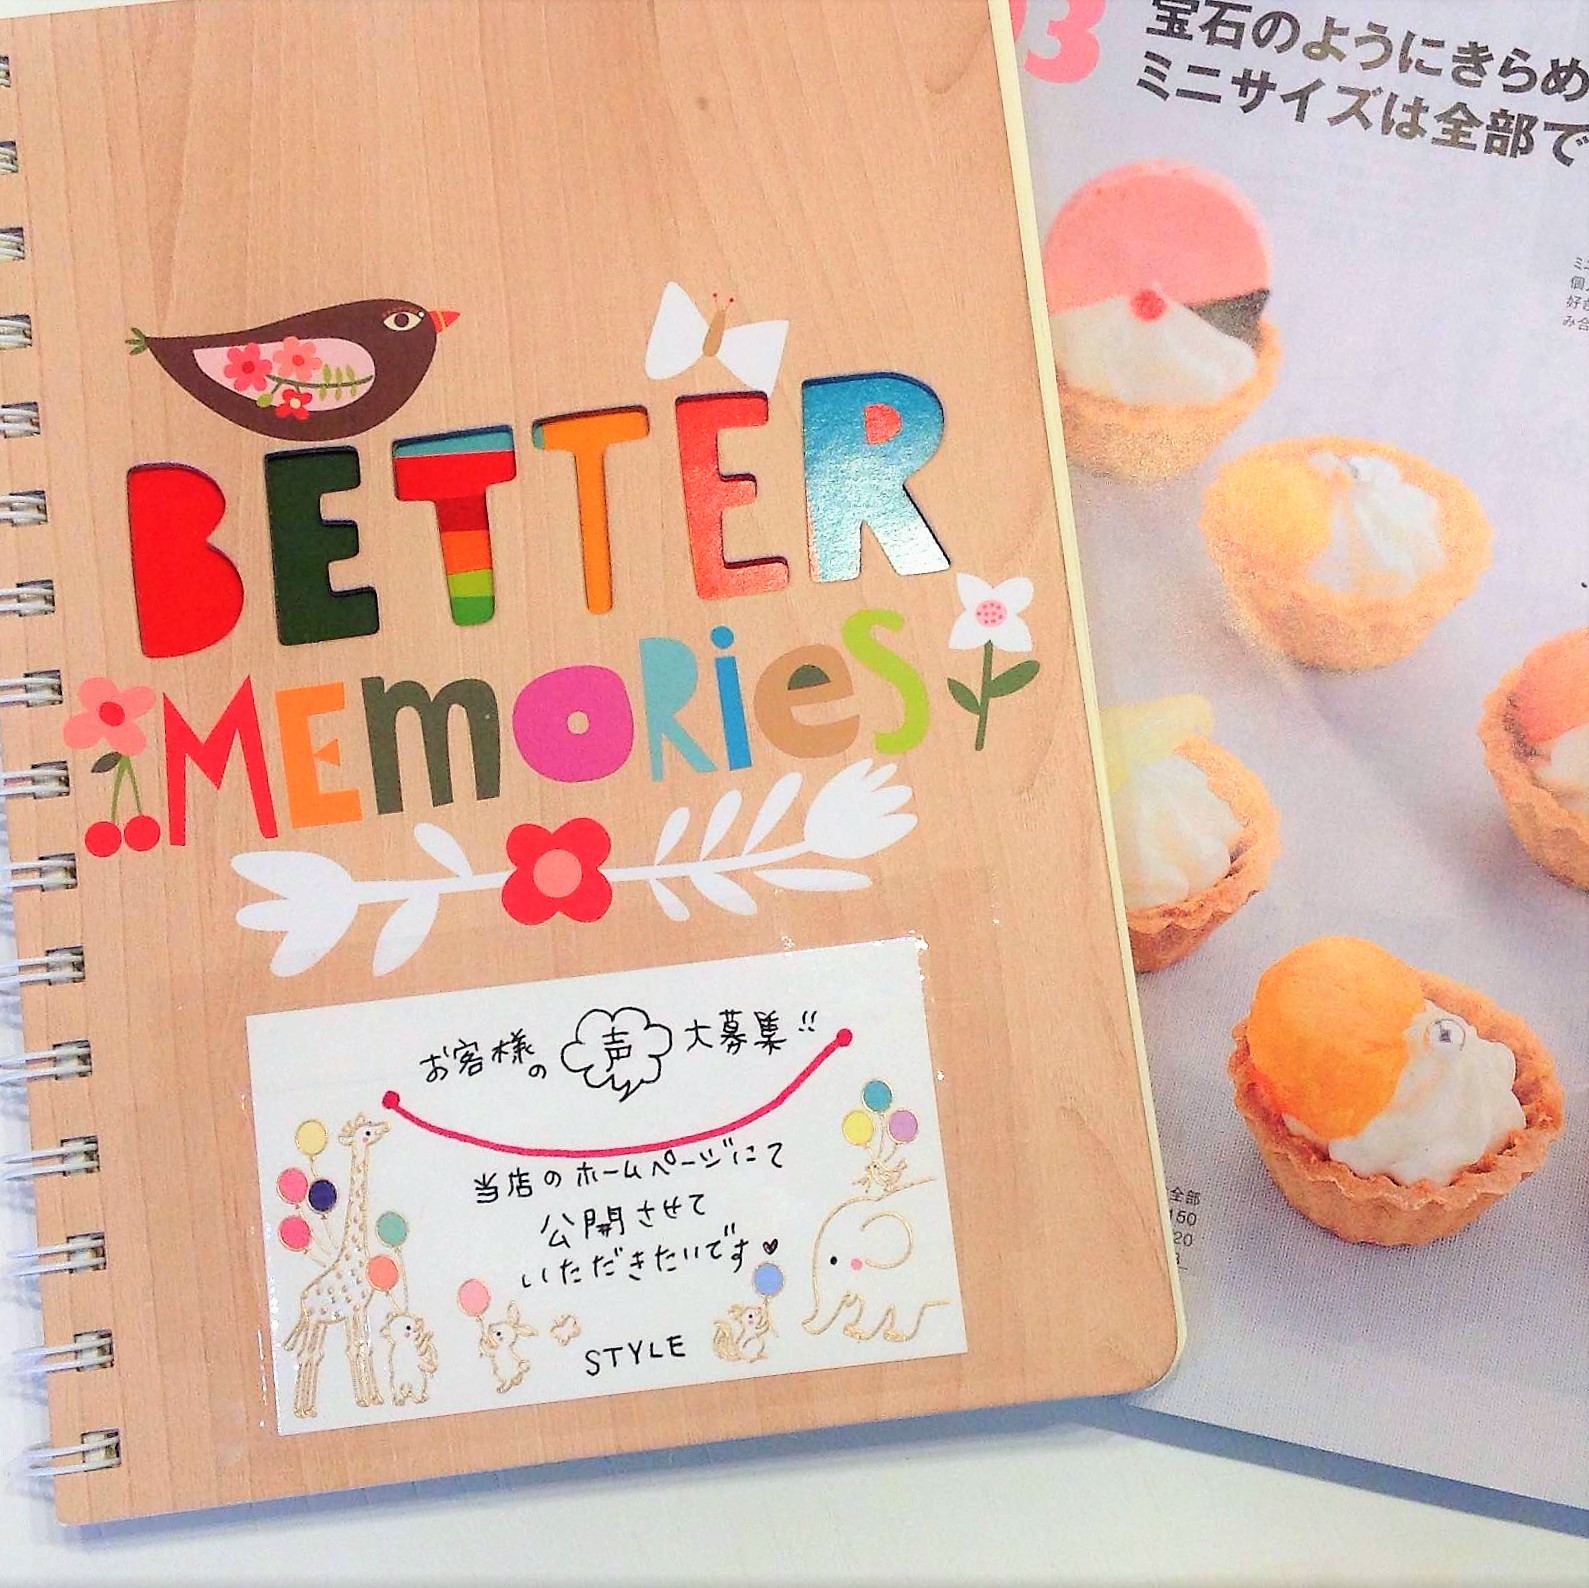 BETTER
MEMORIES
お客様の声大募集!!
当店のホームページにて
公開させて
いただきたいです♥
STYLE
3
宝石のようにきらめ
ミニサイズは全部で
個
好き
み合
全部
150
20